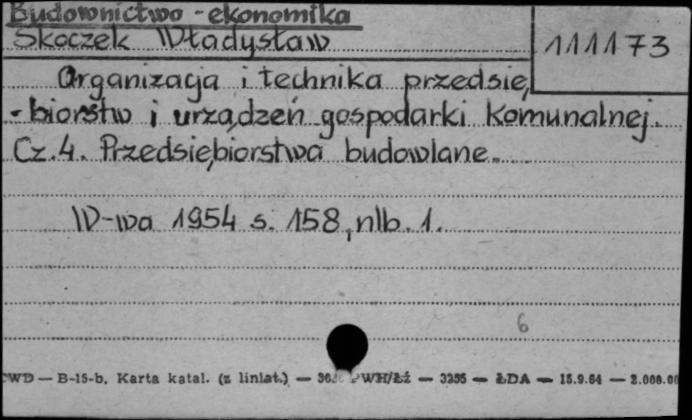 Budownictwo - ekonomika
Skoczek Władysław
111173
Organizacja i technika przedsię
-biorstw i urządzeń gospodarki komunalnej.
Cz. 4. Przedsiębiorstwa budowlane.
W-wa 1954 s. 158, nlb. 1.
6
CWD — B-15-b. Karta katal. (z liniat.) — PWH/Łź — 3255 — ŁDA — 15.9.64 — 2.000.00